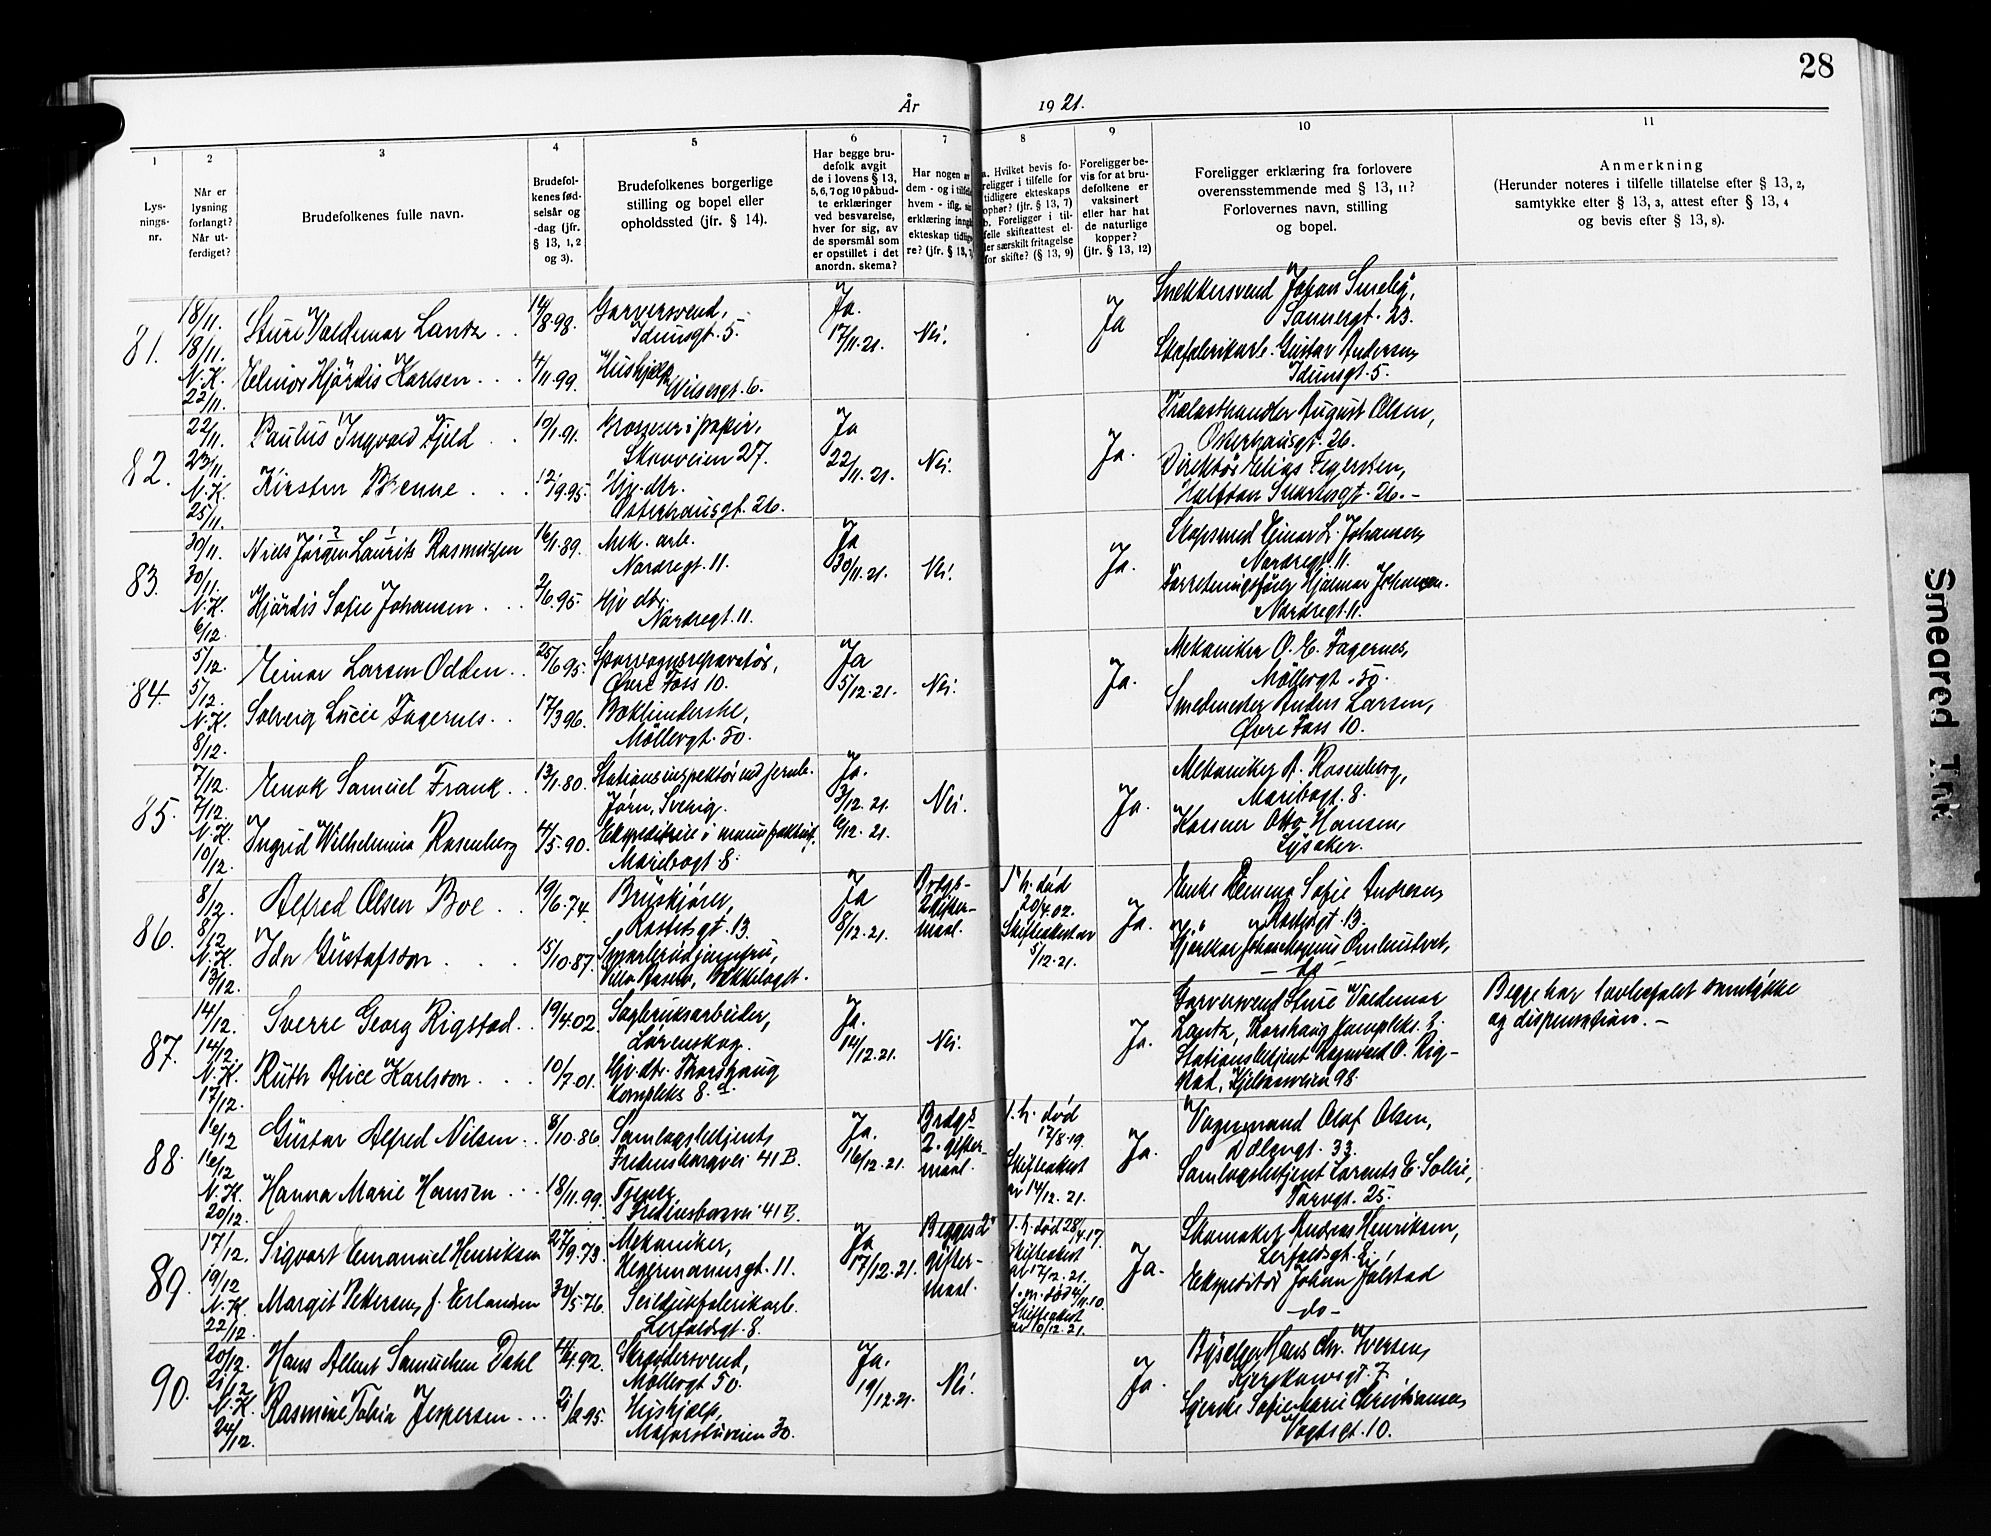 28
År 1921.
1
2
3
4
5
6
7
8
9
10
11
Lys-
nings-
nr.
Når er
lysning
forlangt?
Når ut-
ferdiget?
Brudefolkenes fulle navn.
Brudefol-
kenes fød-
selsår og
-dag (jfr.
§ 13, 1, 2
og 3).
Brudefolkenes borgerlige
stilling og bopel eller
opholdssted (jfr. § 14).
Har begge bru-
defolk avgit
de i lovens § 13,
5, 6, 7 og 10 påbud-
te erklæringer
ved besvarelse,
hver for sig, av
de spørsmål som
er opstillet i det
anordn. skema?
Har nogen av
dem - og i tilfelle
hvem - iflg. sin
erklæring inngå
ekteskap tidlige
re? (jfr. § 13, 7
a. Hvilket bevis fo-
religger i tilfelle for
tidligere ekteskaps
ophør? (jfr. § 13, 7)
b. Foreligger i til-
felle skifteattest el-
ler særskilt fritagelse
for skifte? (§ 13, 9)
Foreligger be-
vis for at bru-
defolkene er
vaksinert
eller har hat
de naturlige
kopper?
(jfr. § 13, 12)
Foreligger erklæring fra forlovere
overensstemmende med § 13, 11?
Forlovernes navn, stilling
og bopel.
Anmerkning
(Herunder noteres i tilfelle tillatelse efter § 13, 2,
samtykke efter § 13, 3, attest efter § 13, 4
og bevis efter § 13, 8).
81.
18/11.
18/11.
N.K.
22/11.
Sture Valdemar Lantz
14/8 98.
Garversvend,
Idunsgt. 5.
Ja.
17/11.21.
Nei.
Ja
Snekkersvend Johan
Sannergt. 23.
Elinor Hjördis Karlsen
4/11 99.
Hushjelp
Nilsesgt. 6.
Skofabrikarb. Gustav Andersen,
Idunsgt. 5.
82.
22/11.
23/11.
N.K.
25/11.
Paulus Ingvald Fjeld
10/1 91.
Grosserer i papir,
Skovveien 27.
Ja
22/11.21.
Nei.
Ja.
Trælasthandler August Olsen,
Osterhausgt. 26.
Kirsten Brenne
12/9 95.
Hjv. dtr.
Osterhausgt. 26.
Direktør Elias Fegersten,
Halfdan Svartesgt. 26.-
83.
30/11.
30/11.
N.K.
6/12.
Niels Jörgen Laurits Rasmussen
16/1 89.
Mek. arb.
Nordregt. 11.
Ja
30/11.21.
Nei.
Ja.
Einar L. Johansen,
Nordregt. 11.
Hjördis Sofie Johansen
2/6 95.
Hjv dtr.
Nordregt. 11.
Forretningsfører Hjalmar Johansen.
Nordregt. 11.
84.
5/12.
5/12.
N.K.
8/12.
Einar Larsen Odden
25/6 95.
Sporvognsreparatör,
Øvre Foss 10.
Ja
5/12.21.
Nei.
Ja.
Mekaniker O. E. Fagernes,
Möllergt. 50.
Solveig Lucie Fagernes
17/3 96.
Bokbinderske,
Möllergt. 50.
Smedmester Anders Larsen,
Øvre Foss 10.
85.
7/12.
7/12.
N.K.
10/12.
Enok Samuel Frank
13/1 80.
Stationsinspektör ved jernb.
Jörn, Sverig.
Ja.
3/12.21.
6/12.21.
Nei.
Ja.
Mekaniker A. Rosenberg,
Maribogt. 8.
Ingrid Wilhelmina Rosenberg
4/5.90.
Ekspeditrice i manufakturf.
Maribogt. 8.
Kasserer Otto Hansen,
Lysaker.
86.
8/12.
8/12
N.K.
13/12.
Alfred Olsen Boe
19/6.74.
Bruskjører,
Rostedsgt. 13.
Ja
8/12.21.
Brdgs-
2 gifter-
maal.
1' h. död
20/4.02.
Skifteattest av
5/12.21.
Ja.
Enke Sofie Andersen
Rostedsgt. 13.
Ida Gustafsson
15/10.87.
Smørbrødjomfru,
Villa Bækkelaget.
Johan Magnus
- do -
87.
14/12.
14/12.
N.K.
17/12.
Sverre Georg Rigstad
19/4.02.
Sagbruksarbeider,
Lørenskog.
Ja.
14/12.21.
Nei.
Ja.
Garversvend Sture Valdemar
Lantz, Thorshaug Kompleks. 8.
Begge har lovbefalet samtykke
og dispensation.-
Ruth Alice Karlsson
10/7.01.
Hjv. dtr. Thorshaug
Kompleks 8.
Stationsbetjent Ragnvald O. Rig-
stad, Kjelsaasveien 98.
88.
16/12
16/12
N.K.
20/12.
Gustav Alfred Nilsen
8/10.86.
Samlagsbetjent,
Fredensborgvei 41 B.
Ja.
16/12.21.
Brdgs
2. gifter-
maal.
1. h. död
17/8.19.
Skifteattest
av 14/12.21.
Ja.
Vognmand Olaf Olsen,
Dælengt. 33.
Hanna Marie Hansen
18/11.99.
Tjener,
Fredensborgvei 41 B.
Samlagsbetjent Lorents E. Sollie,
Torvgt. 25.
89.
17/12.
19/12
N.K.
22/12.
Sigvart Emanuel Henriksen
27/9.73.
Mekaniker,
Heyermannsgt. 11.
Ja
17/12.21.
Begges 2'
gifter-
maal.
1. h. död 28/4.17.
Skifteattest
av 17/12.21.
1. m. död 4/11.10.
Skifteattest
av 10/12.21.
Ja.
Skomaker Andreas Henriksen,
Lerfaldsgt. 8.
Margit Petersen, f. Erlandsen
30/5.76.
Seildukfabrikarb.
Lerfaldsgt. 8.
Ekspeditør Johan Jølstad
- do -
90.
20/12.
21/12
N.K.
24/12.
Hans Albert Samuelsen Dahl
4/4.92.
Skræddersvend,
Möllergt 50.
Ja.
19/12.21.
Nei.
Ja.
Hans Chr. Iversen,
Rasmine Tobia Jespersen
2/2.95.
Hushjælp,
Majorstuveien 30.
Sofie Marie Christiansen,
Vogtsgt. 10.
Smeared Ink